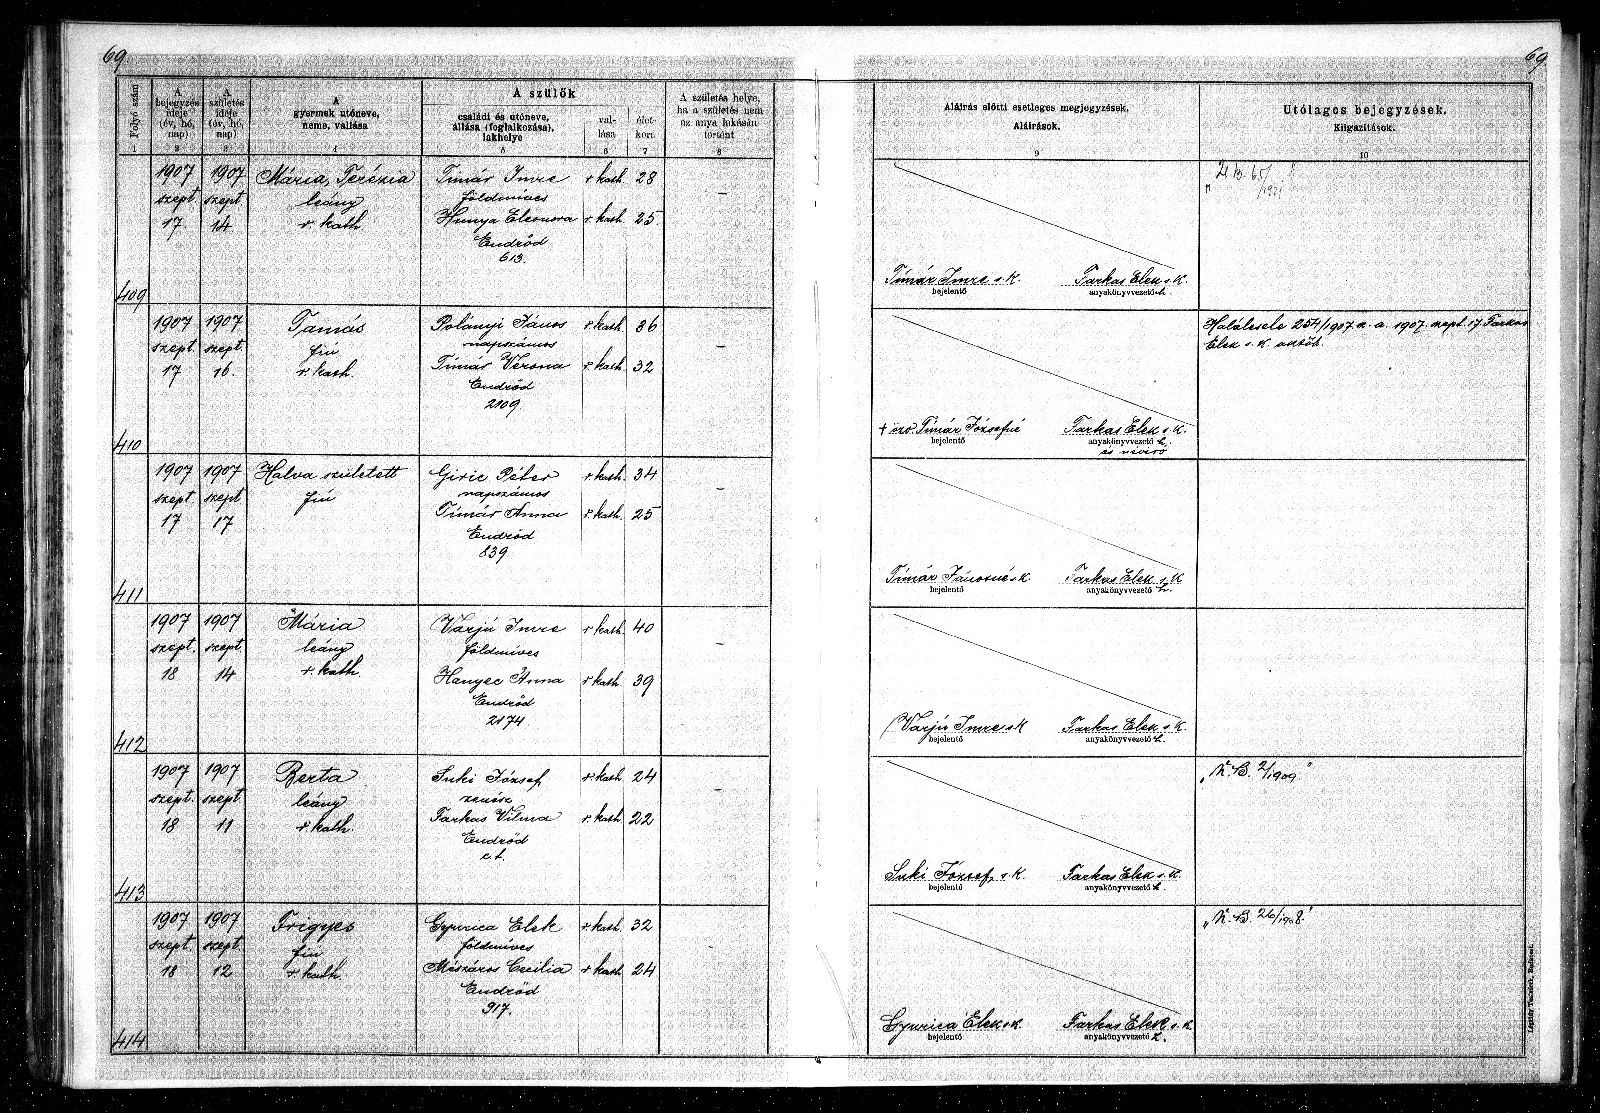 69.
69
Folyó szám
A bejegyzés ideje (év, hó, nap)
A születés ideje (év, hó, nap)
A gyermek utóneve, neme, vallása
A szülők
családi és utóneve, állása (foglalkozása), lakhelye
vallása
életkora
A születés helye, ha a születés nem az anya lakásán történt
Aláírás előtti esetleges megjegyzések.
Aláírások.
Utólagos bejegyzések.
Kiigazítások.
1 2 3 4 5 6 7 8 9 10
409
1907 szept. 17
1907 szept. 14
Mária, Terézia
leány
r. kath.
Tímár Imre r. kath. 28
földmíves
Hunya Eleonora r. kath. 25
Endrőd
613.
–
Tímár Imre s. K.
bejelentő
Farkas Elek s. K.
anyakönyvvezető h.
410
1907 szept. 17
1907 szept. 16.
Tamás
fiú
r. kath.
Polányi János r. kath. 36
napszámos
Tímár Verona r. kath. 32
Endrőd
2109
–
+ özv. Tímár Józsefné
bejelentő
Farkas Elek s. K.
anyakönyvvezető h.
és névíró
Halálesete 254/1907 a. a. 1907. szept. 17 Farkas
Elek s. K.
411
1907 szept. 17
1907 szept. 17
Halva született
fiú
Giric Péter r. kath. 34
napszámos
Tímár Anna r. kath. 25
Endrőd
839
–
Tímár Jánosné s. K.
bejelentő
Farkas Elek s. K
anyakönyvvezető h.
412
1907 szept. 18
1907 szept. 14
Mária
leány
r. kath.
Varjú Imre r. kath. 40
földmíves
Hanyec Anna r. kath. 39
Endrőd
2174
–
Varjú Imre s. K
bejelentő
Farkas Elek s. K.
anyakönyvvezető h.
413
1907 szept. 18
1907 szept. 11
Berta
leány
r. kath.
Suki József r. kath. 24
zenész
Farkas Vilma r. kath. 22
Endrőd
c. t.
–
Suki József s. K.
bejelentő
Farkas Elek s. K.
anyakönyvvezető h.
„N. B. 2/1909."
414
1907 szept. 18
1907 szept. 12
Frigyes
fiú
r. kath.
Gyurica Elek r. kath. 32
földmíves
Mészáros Cecilia r. kath. 24
Endrőd
917.
Gyurica Elek s. K.
bejelentő
Farkas Elek s. K
anyakönyvvezető h.
„N. B. 26/1908."
Légrády Testvérek, Budapest.